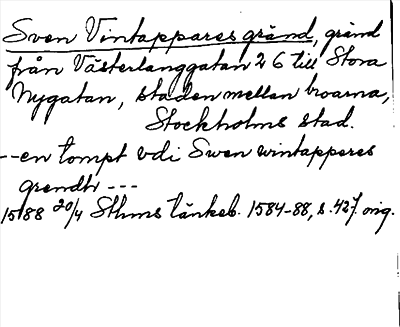 Sven Vintappares gränd, gränd
från Västerlånggatan 26 till Stora
Nygatan, staden mellan broarna,
Stockholms stad.
--en tompt vdi Swen wintapperes
grendh ---
1588 20/4 Sthms tänkeb. 1584-88, s. 427. orig.